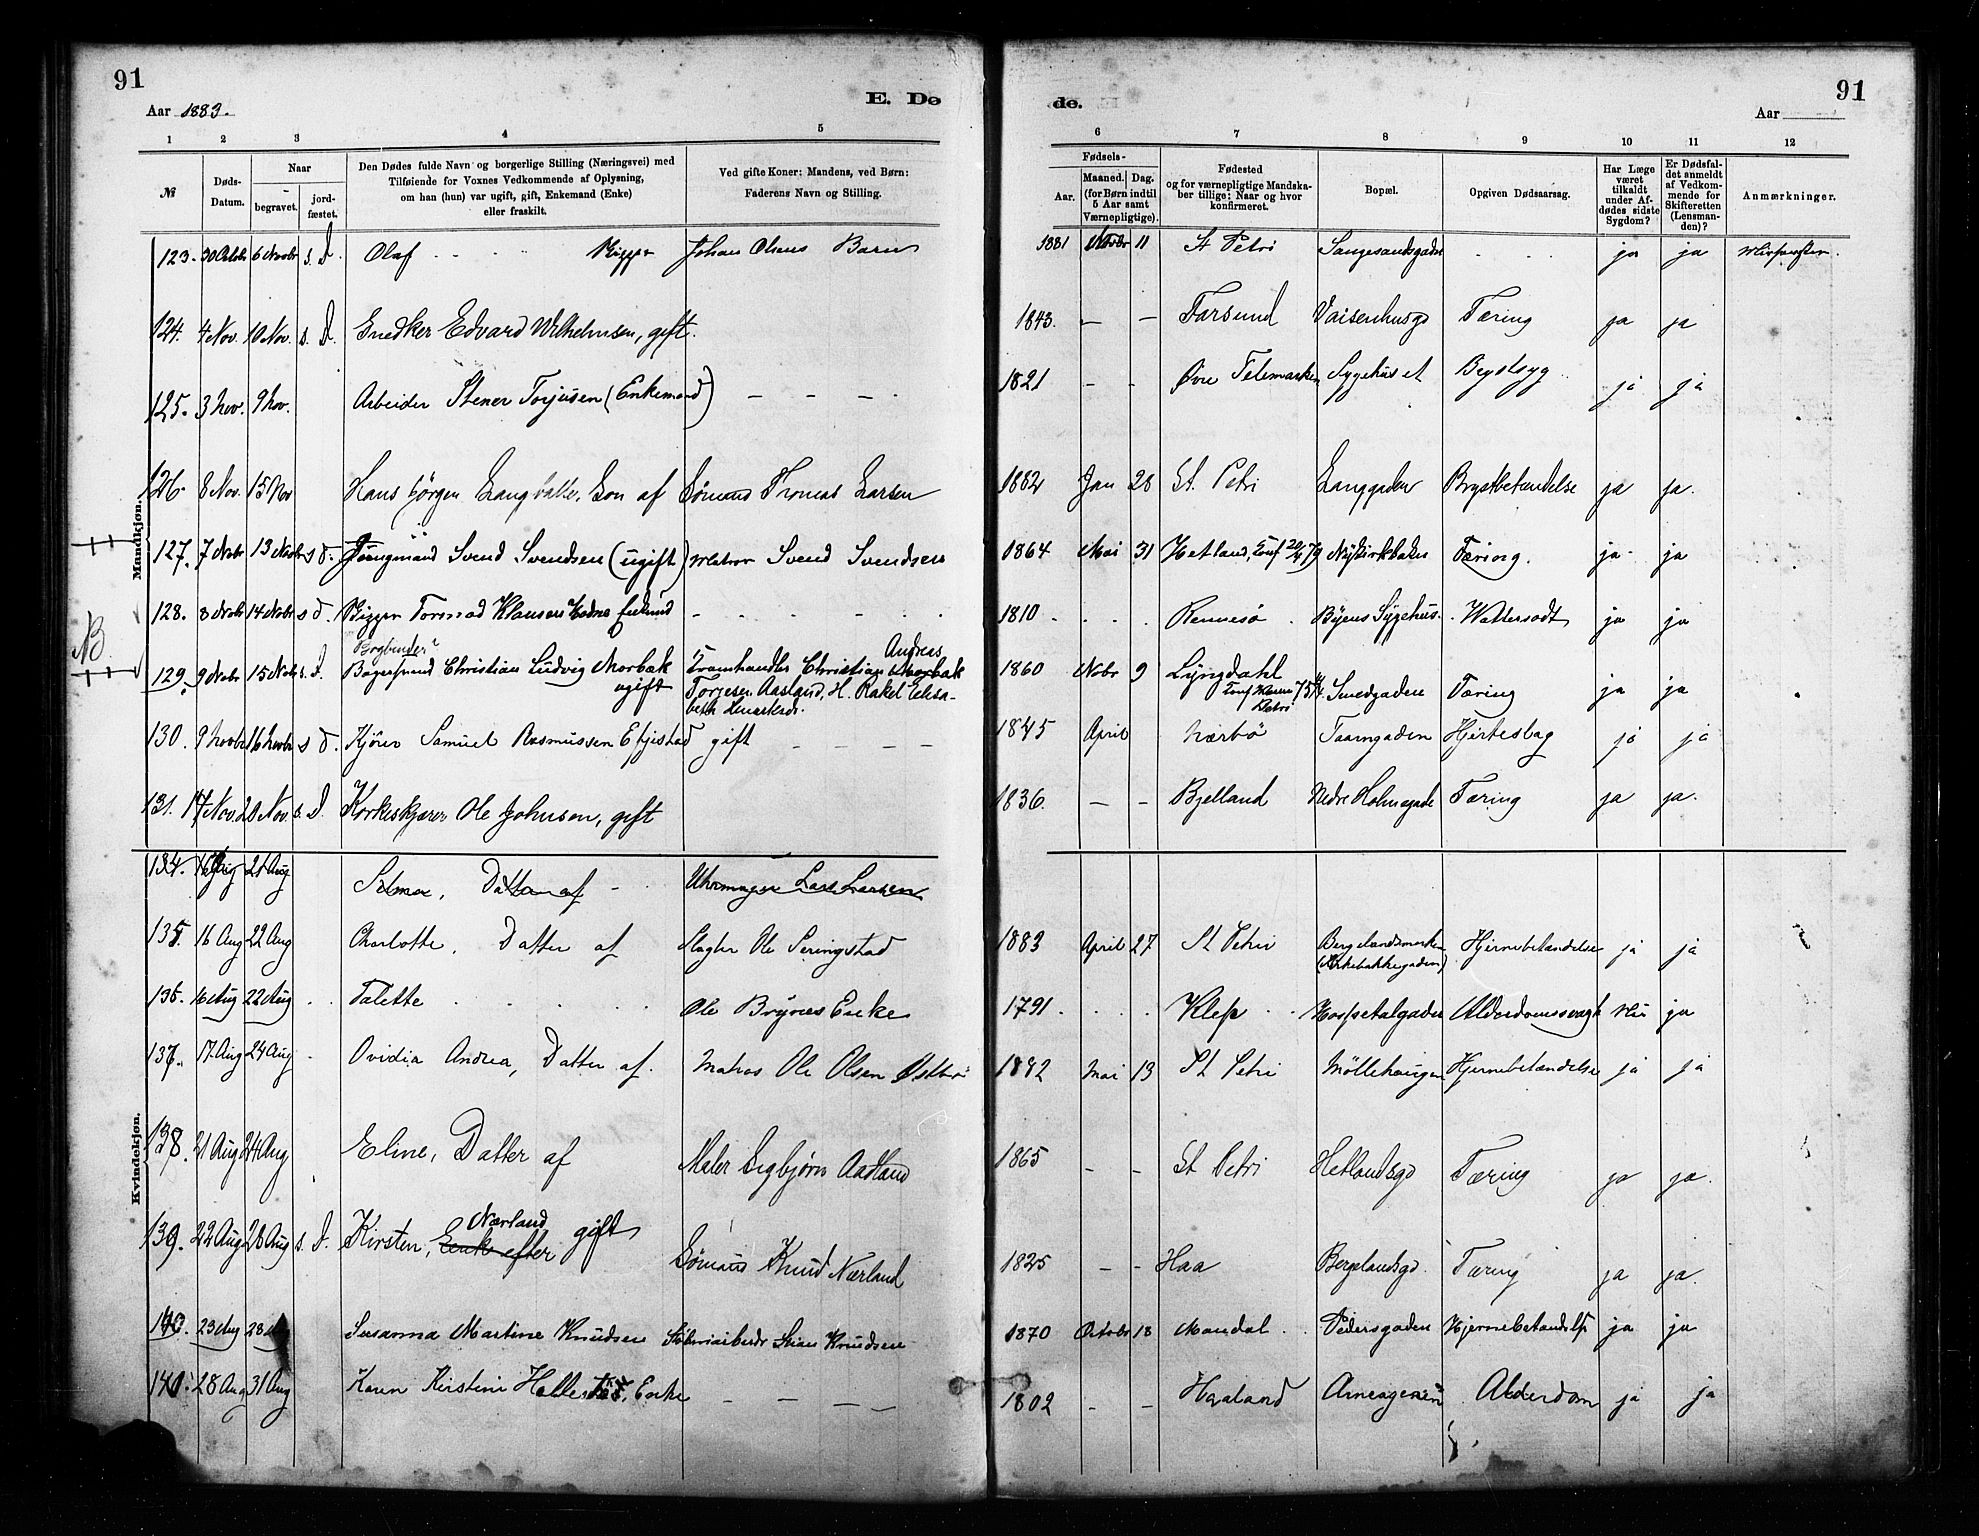 91
Aar 1883.
E. Dø
1 2 3 4 5
№
Døds-
Datum.
Naar
begravet.
jord-
fæstet.
Den Dødes fulde Navn og borgerlige Stilling (Næringsvei) med
Tilføiende for Voxnes Vedkommende af Oplysning,
om han (hun) var ugift, gift, Enkemand (Enke)
eller fraskilt.
Ved gifte Koner: Mandens, ved Børn:
Faderens Navn og Stilling.
Mandkjøn.
123. 30 Octbr 6 Novbr s. d. Olaf Rigger Johan Olsens Barn
124. 4 Nov. 10 Nov. s. d. Snedker Edvard Wilhelmsen, gift.
125. 3 Nov. 9 Nov. Arbeider Stener Torjusen (Enkemand) — — —
126. 8 Nov. 15 Nov Hans Jørgen Langballe, Søn af Sømand Thomas Larsen
127. 7 Novbr 13 Novbr s d. Youngmand Svend Svendsen (ugift) Matros Svend Svendsen
128. 8 Novbr 14 Novbr s d. Rigger Tormod Klausen Hodne Enkemd
Bogbinder
Andreas
129. 9 Novbr 15 Novbr s. d. Christian Ludvig Morbak Christian Morbak
ugift Torjesen Aasland, H. Rakel Elisa-
beth
130. 9 Novbr 16 Novbr s d. Kjører Samuel Rasmussen gift — — — —
131. 17 Nov. 20 Nov. s. d. Korkeskjærer Ole Johnsen, gift
Kvindekjøn.
134. 16 Aug 21 Aug Selma, Datter af Uhrmager Lars Larsen
135. 16 Aug 22 Aug Charlotte, Datter af Slagter Ole Seringstad
136. 16 Aug 22 Aug Talette Ole Brynes Enke
137. 17 Aug 24 Aug Ovidia Andrea, Datter af. Matros Ole Olsen Østbø
138. 21 Aug 24 Aug Eline, Datter af Maler Sigbjørn Aadland
Nærland
139. 22 Aug 28 Aug s. d. Kirsten, Enke efter gift Sømand Knud Nærland
140. 23 Aug 28 Aug Susanna Martine Knudsen Stian Knudsen
141. 28 Aug 31 Aug Karen Kirstine Enke — — —
91
de.
Aar
6 7 8 9 10 11 12
Fødsels-
Aar.
Maaned.
Dag.
(for Børn indtil
5 Aar samt
Værnepligtige).
Fødested
og for værnepligtige Mandska-
ber tillige: Naar og hvor
konfirmeret.
Bopæl.
Opgiven Dødsaarsag.
Har Læge
været
tilkaldt
under Af-
dødes sidste
Sygdom?
Er Dødsfal-
det anmeldt
af Vedkom-
mende for
Skifteretten
(Lensman-
den)?
Anmærkninger.
1881 Novbr 11 St Petri ja ja
1843. — — Farsund Vaisenhusgd Tæring ja ja
1821 - - Øvre Telemarken Sygehuset Brystsyg ja ja
1882 Jan 28 St. Petri Langgaden Brystbetændelse ja ja.
1864 Mai 31 Hetland, Conf 20/4 79 Nykirkbakken Tæring. ja ja
1810 Rennesø Byens Sygehus. Wattersodt ja ja
1860 Novbr 9 Lyngdahl
Petri Smedgaden Tæring ja ja
1845 April Nærbø Taarngaden Hjerteslag ja ja
1836. — - Bjelland Nedre Holmegade Tæring ja ja.
1883 April 27 St Petri Bergelandsmarken
(Kirkebakkegaden) Hjernebetændelse ja ja
1791 Klep Hospetalgaden Alderdomssvagh Nei ja
1882 Mai 13 St Petri Møllehaugen Hjernebetændelse ja ja
1865 — - St Petri Hetlandsgd Tæring ja ja.
1825 — - Haa Bergelandsgd. Tæring ja ja.
1870 Octobr 18 Mandal Pedersgaden Hjernebetændelse ja ja
1802 - - Haaland Alderdom ja ja